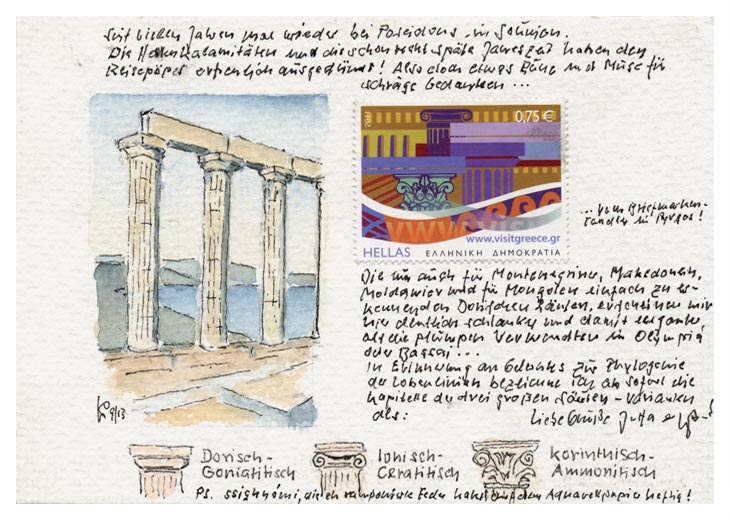 Seit vielen Jahren mal wieder bei Poseidons in Soúnion.
Die Hellaskalamitäten und die schon recht späte Jahreszeit haben den
Reisepöpel erfreulich ausgedünnt! Also doch etwas Ruhe und Muse für
schräge Gedanken ...
0,75 €
...vom Briefmarken-
händler in Pyrgos!
www.visitgreece.gr
HELLAS ΕΛΛΗΝΙΚΗ ΔΗΜΟΚΡΑΤΙΑ
Die nun auch für Montenegriner, Makedonen,
Moldawier und für Mongolen einfach zu er-
kennenden Dorischen Säulen, erscheinen mir
hier deutlich schlanker und damit eleganter,
als die plumpen Verwandten in Olympia
oder Bassai ...
In Erinnerung an Gedanks zur Phylogenie
der Lobenlinien bezeichne ich ab sofort die
Kapitelle der drei großen Säulen-Varianten
als:
Liebe Grüße Jutta
9/13
Dorisch-
Goniatitisch
Ionisch-
Ceratitisch
Korinthisch-
Ammonitisch
Ps. ssighnómi, die eh ramponierte Feder hakt auf dem Aquarellpapier heftig!